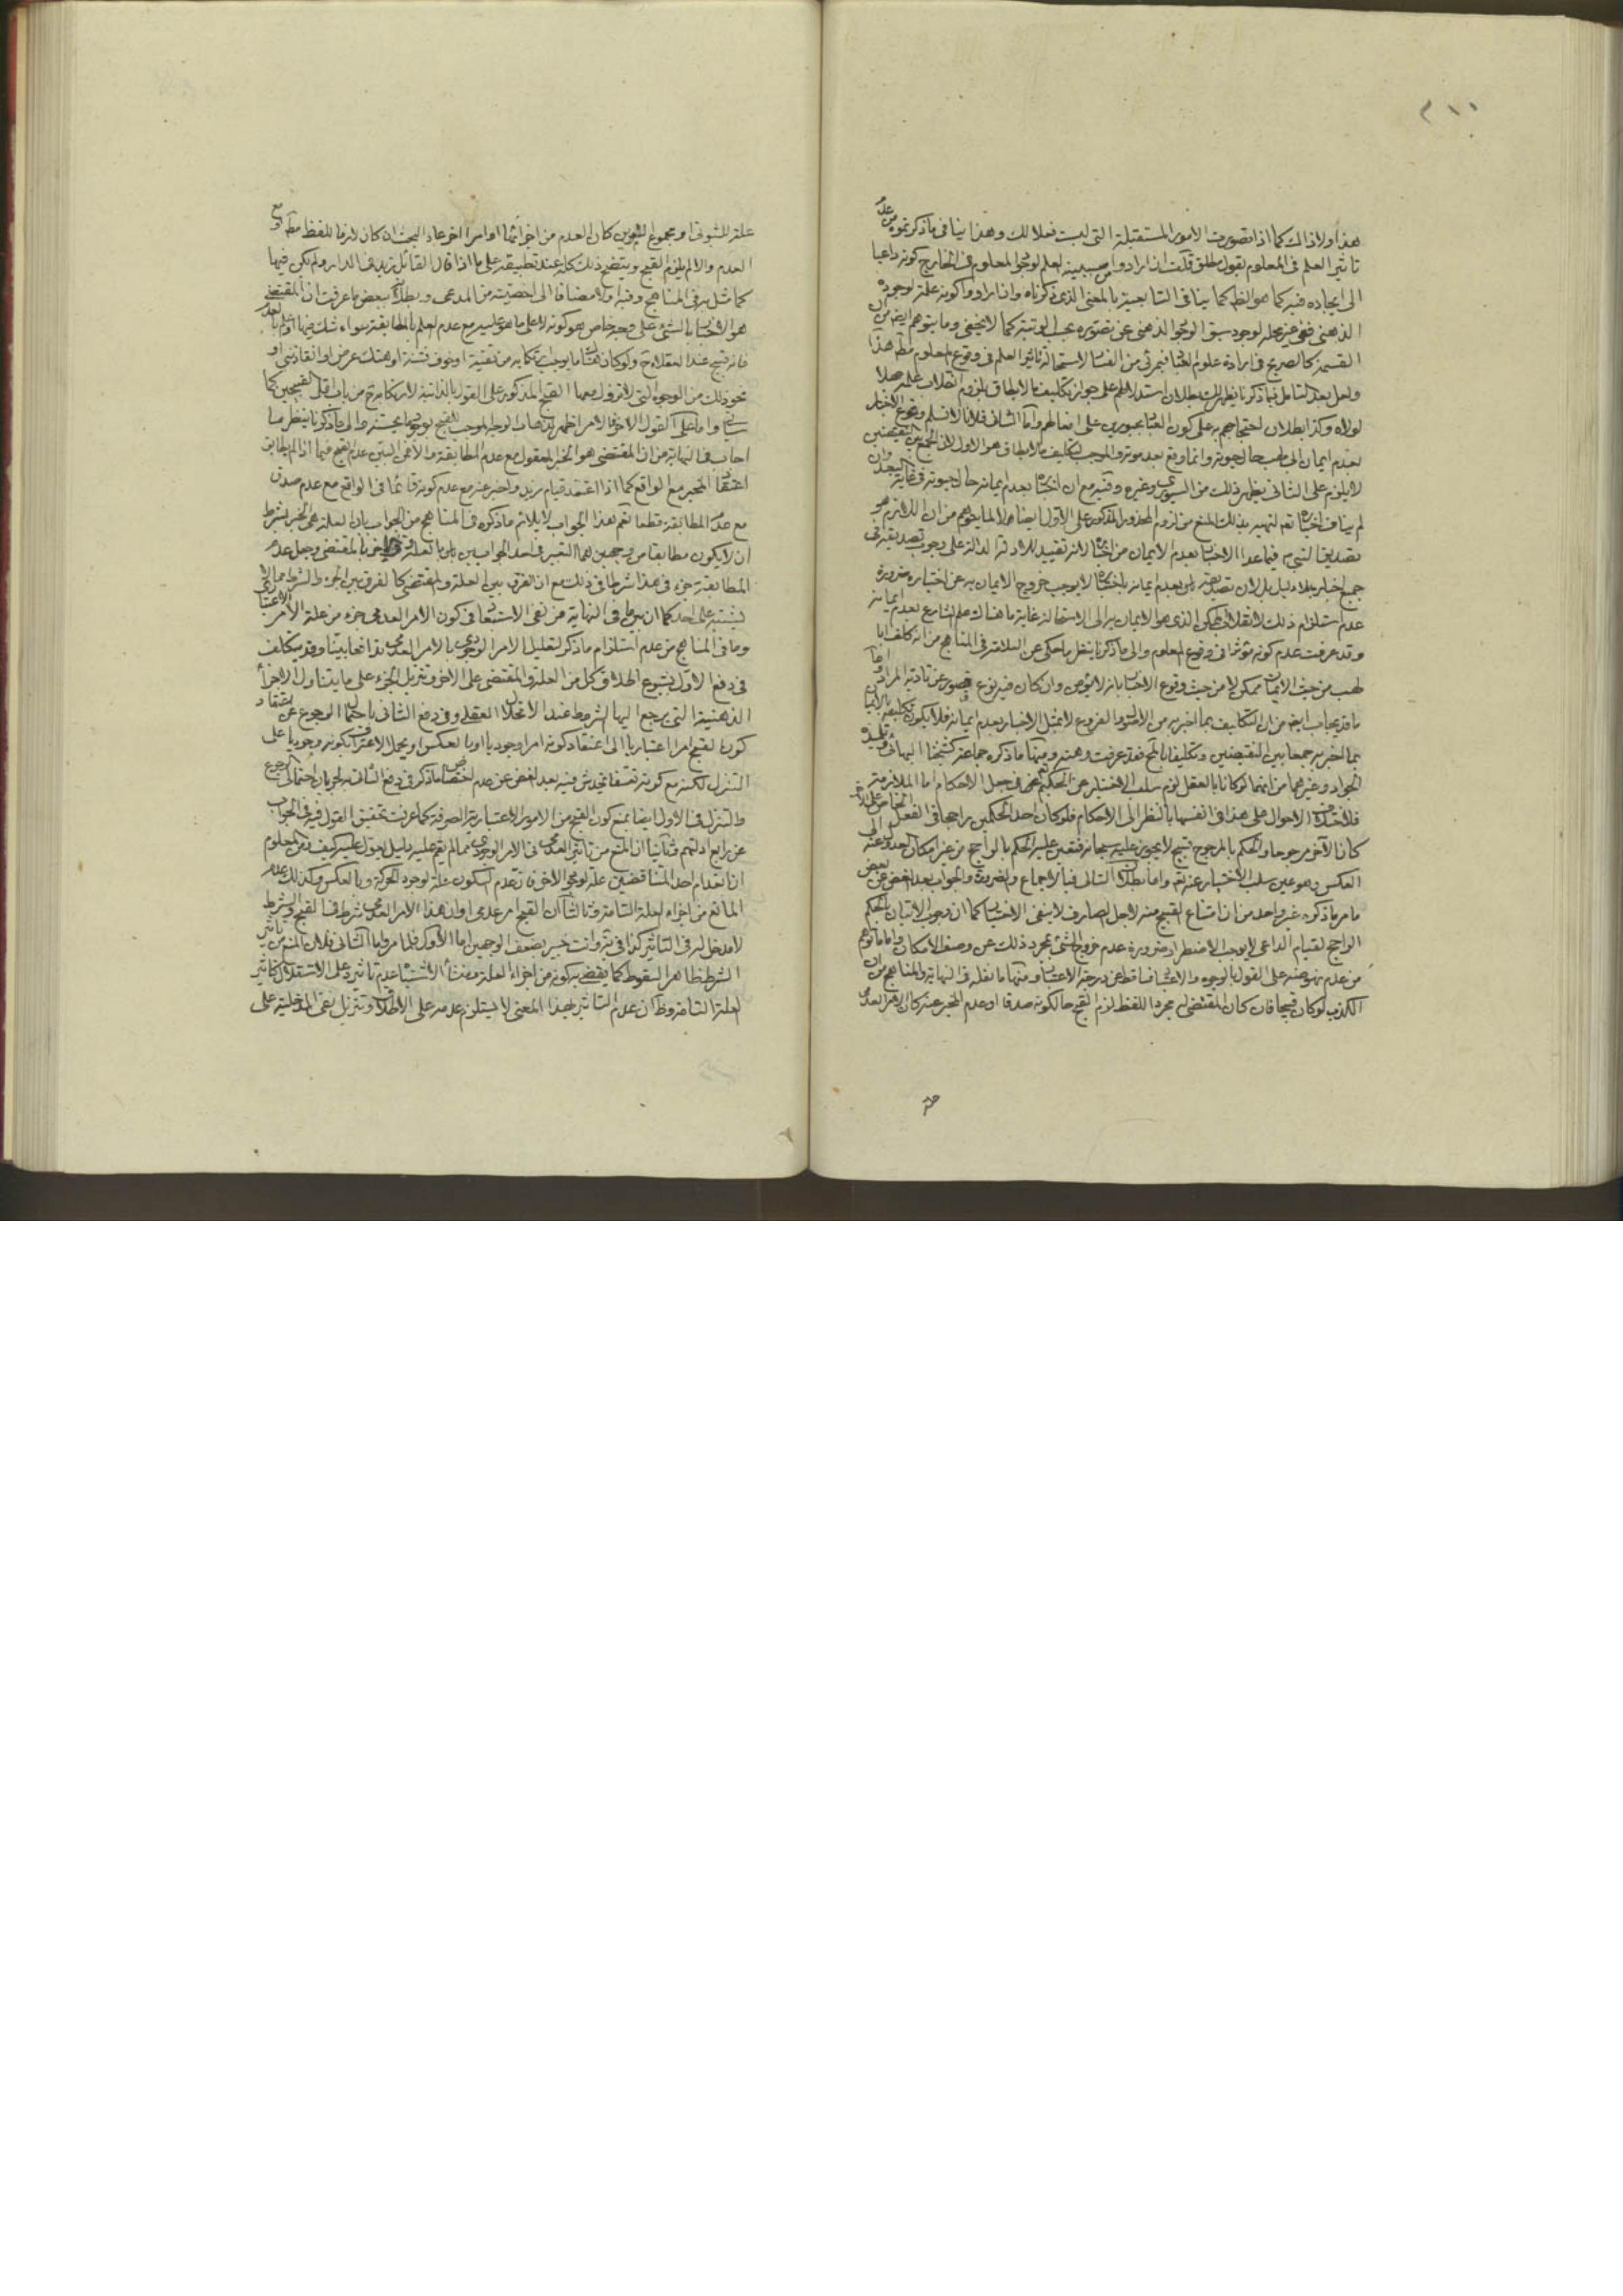 ٢١١
هذا ولا ذاك كما اذا تصورت الامور المستقبلة التى ليست فعلا لك وهذا ينافى ما ذكرتموه من عدم
تاثير العلم فى المعلوم بقول مطلق قلت ان ارادوا سببية العلم لوجود المعلوم فى الخارج كونه داعيا
الى ايجاده فيه كما هو الظ كما ينافى التابعية بالمعنى الذى ذكرناه وان ارادوا كونه علة لوجوده
الذهنى ففى غير محله لوجود سبق الوجود الذهنى عن تصوره بحسب الرتبة كما لا يخفى وما يتوهم ايضا من ان
القسمة كالصريح فى ارادة علوم العباد من الفساد لاستحالة تاثير العلم فى وقوع المعلوم مط هذا
ولعل بعد التامل فيما ذكرنا يظهر لك بطلان استدلالهم على جواز تكليف ما لا يطاق بلزوم انقلاب علمه جهلا
لولاه وكذا بطلان احتجاجهم على كون العباد مجبورين على افعالهم واما الثانى فلانا لا نسلم وقوع الاخبار
بعدم ايمان ابى لهب حال حيوته وانما وقع بعد موته والموجب لتكليف ما لا يطاق هو الاول لا الجمع بين النقيضين
لا يلزم على الثانى يظهر ذلك من السيورى وغيره وفيه مع ان اخباره بعدم ايمانه حال حيوته فى غاية البعد وان
لم يناف اخباره نعم لتمييز بذلك المنع من لزوم المحذور المذكور على الاول ايضا لا لما يتوهم من ان اللازم هو
تصديق النبى فيما عدا الاخبار بعدم الايمان من اخباره لانه تقييد للادلة الدالة على وجوب تصديقه فى
جميع اخباره بلا دليل بل لان تصديقه بعدم ايمانه باختياره لا يوجب خروج الايمان به عن اختياره ضرورة
عدم استلزام ذلك لانقلاب الممكن الذى هو الايمان به الى الاستحالة غاية ما هناك علم الشارع بعدم ايمانه
وقد عرفت عدم كونه مؤثرا فى وقوع المعلوم والى ما ذكرنا ينظر ما حكى عن العلامة فى المناهج من انه كلف ابا
لهب من حيث الايمان ممكن لا من حيث وقوع الاخبار بانه لا يؤمن وان كان فيه نوع قصور عن تادية المراد
ما قد يجاب ايضا من ان التكليف بما اخبر به من الاصول والفروع لا بمثل الاخبار بعدم ايمانه فلا يكون تكليفه بالايمان
بما اخبر به جمعا بين النقيضين وتكليفا بالمح فقد عرفت وهنه ومنها ما ذكره جماعة كشيخنا البهائى وتلميذه
الجواد وغيرهما من انهما لو كانا بالعقل لزم سلب الاختيار عن الحكيم تعالى فى جعل الاحكام اما الملازمة
فلاختلاف الاحوال على هذا فى انفسها بالنظر الى الاحكام فلو كان احد الحكمين راجحا فى الفعل الخاص على الاخر
كان الآخر مرجوحا والحكم بالمرجوح قبيح لا يجوز عليه سبحانه فتعين عليه الحكم بالراجح من غير امكان العدول عنه الى
العكس وهو عين سلب الاختيار عنه تعالى واما بطلان التالى فبالاجماع والضرورة والجواب بعد الغض عن بعض
ما مر ما ذكره غير واحد من ان امتناع القبيح منه لاجل الصارف لا ينفى الاختيار كما ان وجوب الاتيان بالحكم
الراجح لقيام الداعى لا يوجب الاضطرار ضرورة عدم خروج الشئ بمجرد ذلك عن وصف الامكان واما ما توهم
من عدم نهوضه على القول بالوجوه والاعتبار فساقط عن درجة الاعتبار ومنها ما نقله فى النهاية والمناهج من ان
الكذب لو كان قبيحا فان كان المقتضى له مجرد اللفظ لزم القبح حال كونه صدقا او عدم المخبر عنه كان الامر العدمى
علة
علة للثبوتى او مجموع الامرين كان العدم من اجزائها او امرا آخر عاد البحث ان كان لازما للفظ مط او مع
العدم والا لم يلزم القبح ويتضح ذلك كله عند تطبيقه على ما اذا قال القائل زيد فى الدار ولم يكن فيها
كما مثل به فى المناهج وفيه اولا مضافا الى اخصيته من المدعى وبطلان بعض ما عرفت ان المقتضى
هو الاخبار بالشئ على وجه خاص هو كونه لا على ما هو عليه مع عدم العلم بالمطابقة سواء شك فيها او علم بالعدم
فانه قبيح عند العقلاء ح ولو كان هناك ما يوجب ارتكابه من تقية او خوف فتنة او هتك عرض او انقاذ نبى او
نحو ذلك من الوجوه التى لا تزول معها القبح المذكور على القول بالذاتية لان ارتكابه ح من باب اقل القبيحين كما
سيأتى واما على القول الآخر فالامر اظهر لذهاب الوجه الموجب للقبح لوجود ما يحسنه والى ما ذكرنا ينظر ما
اجاب فى النهاية من ان المقتضى هو الخبر المعقول مع عدم المطابقة والاعمى البين عدم القبح فيما اذا لم يطابق
اعتقاد المخبر مع الواقع كما اذا اعتقد قيام زيد واخبر عنه مع عدم كونه قائما فى الواقع مع عدم صدق
مع عدم المطابقة قطعا نعم هذا الجواب لا يلائم ما ذكره فى المناهج من الجواب بان العلة هى الخبر بشرط
ان لا يكون مطابقا من وجهين لهما التعبير فى احد الجوابين بان العلة وفى الاخر بالمقتضى وجعل عدم
المطابقة جزء فى هذا شرطا فى ذلك مع ان الفرق بين العلة والمقتضى كالفرق بين الجزء والشرط مما لا
يشتبه على احد كما ان ما فى النهاية من نفى الاستبعاد فى كون الامر العدمى جزء من علة الامر الاعتبارى
وما فى المناهج من عدم استلزام ما ذكر لتعليل الامر الوجودى بالامر العدمى تدافعا بينا وقد يتكلف
فى دفع الاول بشيوع اطلاق كل من العلة والمقتضى على الآخر وتنزيل الجزء على ما يتناول الاجزاء
الذهنية التى يرجع اليها الشرط عند الانحلال العقلى وفى دفع الثانى باحتمال الرجوع عن اعتقاد
كون القبح امرا اعتباريا الى اعتقاد كونه امرا وجوديا او بالعكس او يحمل الاعتراف بكونه وجوديا على
التنزل لكنه مع كونه تعسفا يخدش فيه بعد الغض عن عدم اختصاص ما ذكر فى دفع الثانى به لجريان احتمال الرجوع
والتنزل فى الاول ايضا بمنع كون القبح من الامور الاعتبارية الصرفة كما عرفت تحقيق القول فيه فى الجواب
عن رابع ادلتهم وثانيا ان المنع من تاثير العدمى فى الامر الوجودى مما لم يقم عليه دليل يعول عليه كيف ومن المعلوم
ان انعدام احد المتناقضين علة لوجود الآخر فان عدم السكون علة لوجود الحركة وبالعكس وكذلك عدم
المانع من اجزاء العلة التامة وثالثا ان القبح امر عدمى او ان هذا الامر العدمى شرط فى القبح والشرط
لا مدخل له فى التاثير كذا فى ية وانت خبير بضعف الوجهين اما الاول فلما مر واما الثانى فلان المنع من تاثير
الشرط ظاهر السقوط كما يقضى به كونه من اجزاء العلة ومنشأ الاشتباه عدم تاثيره على الاستقلال كتاثير
العلة التامة وظ ان عدم التاثير بهذا المعنى لا يستلزم عدمه على الاطلاق وتنزيل نفى المدخلية على